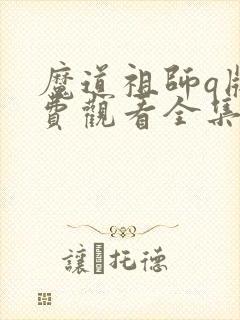 魔道祖師q版
費觀看全集
讓·托德